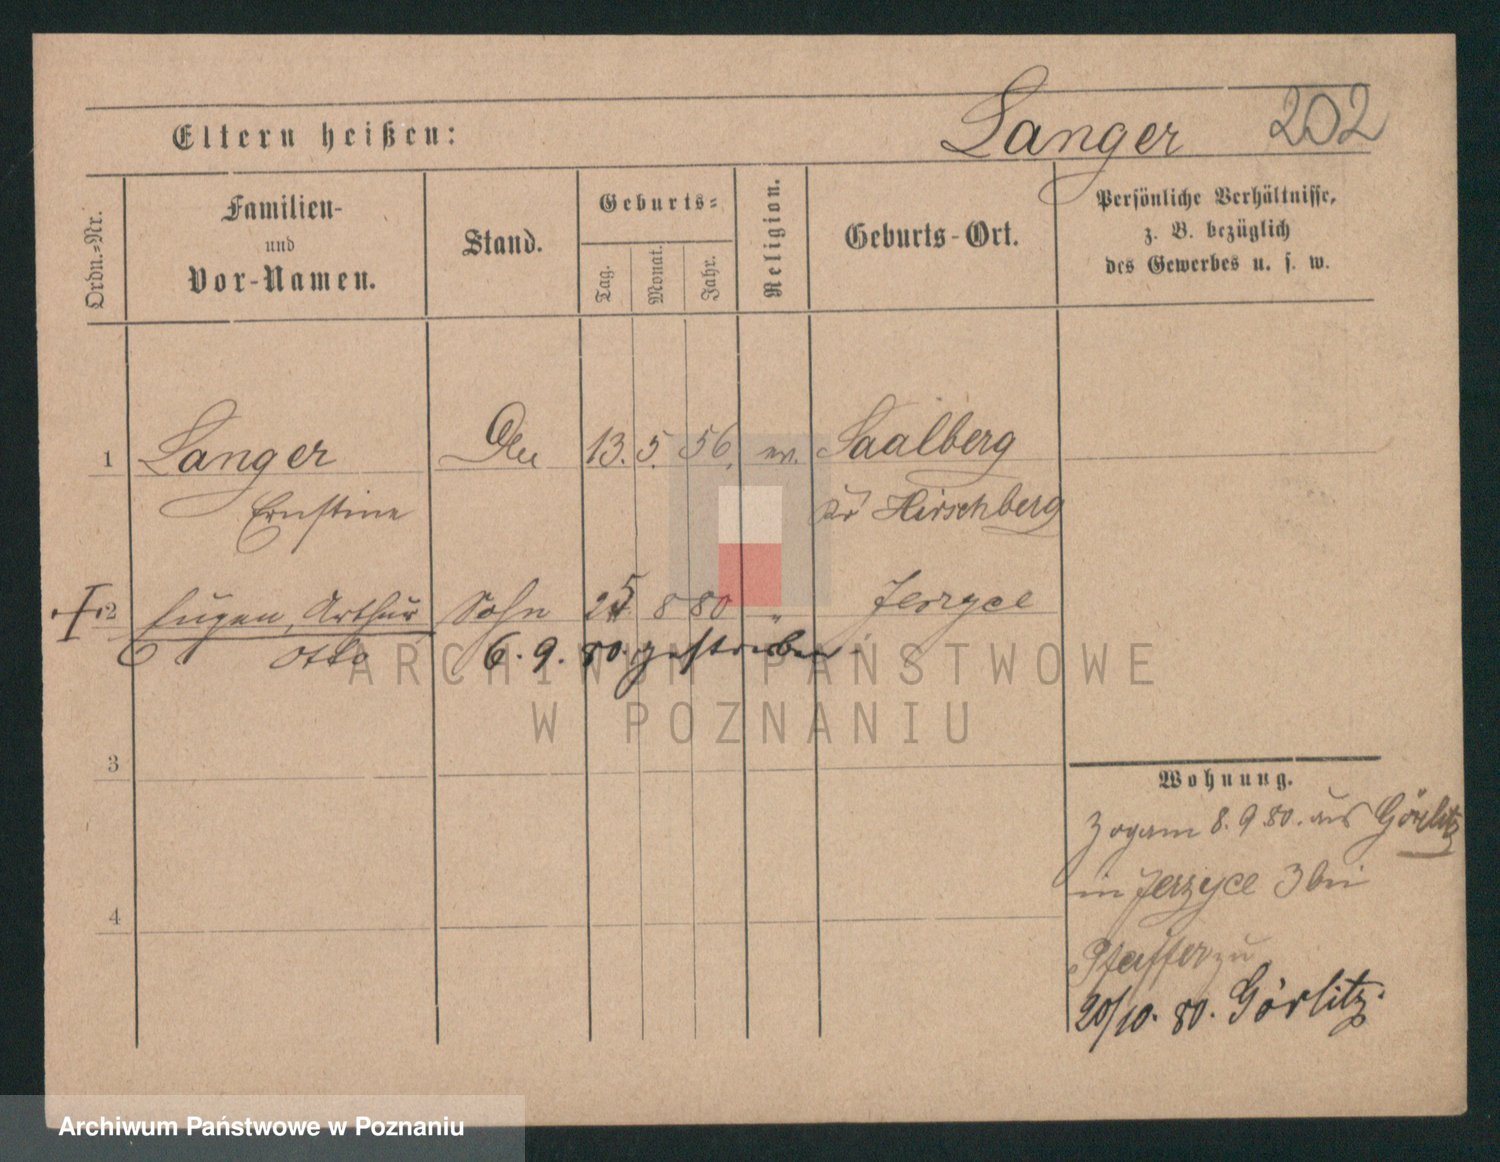 Eltern heißen:
Langer 202
Ordn.-Nr.
Familien-
und
Vor-Namen.
Stand.
Geburts-
Tag.
Monat.
Jahr.
Religion.
Geburts-Ort.
Persönliche Verhältnisse,
z. B. bezüglich
des Gewerbes u. s. w.
1 Langer 13. 5. 56. ev. Saalberg
Ernstine Kr Hirschberg
2 Eugen, Arthur Sohn 25 8 80 " Jerzyce
Otto 6. 9. 80. gestorben.
ARCHIWUM PAŃSTWOWE
W POZNANIU
3
Wohnung.
Zogam 8. 9 80. aus Görlitz
in Jerzyce 3 bei
4
Pfeiffer zu
20/10. 80. Görlitz.
Archiwum Państwowe w Poznaniu